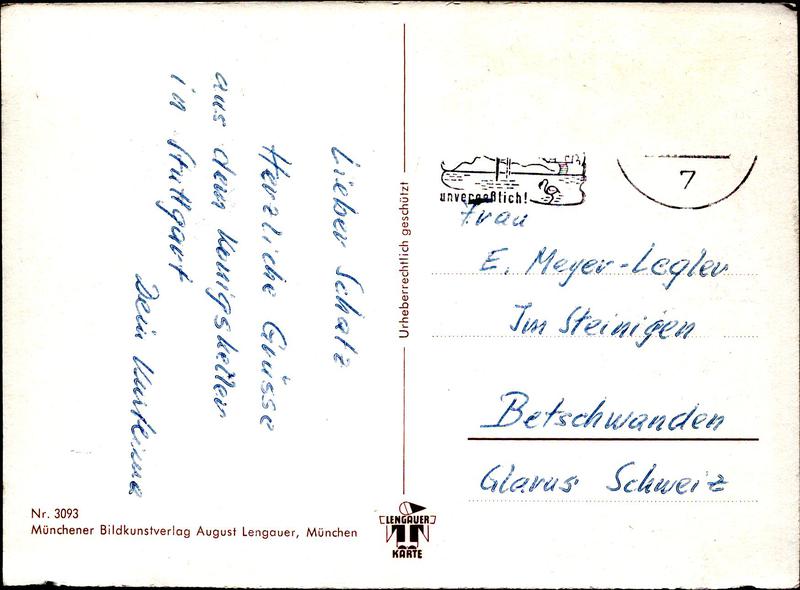 Lieber Schatz
Herzliche Grüsse
aus dem Königskeller
in Stuttgart
Dein
Nr. 3093
Münchener Bildkunstverlag August Lengauer, München
Urheberrechtlich geschützt
LENGAUER
KARTE
unvergeßlich!
7
Frau
E. Meyer-Legler
Im Steinigen
Betschwanden
Glarus Schweiz